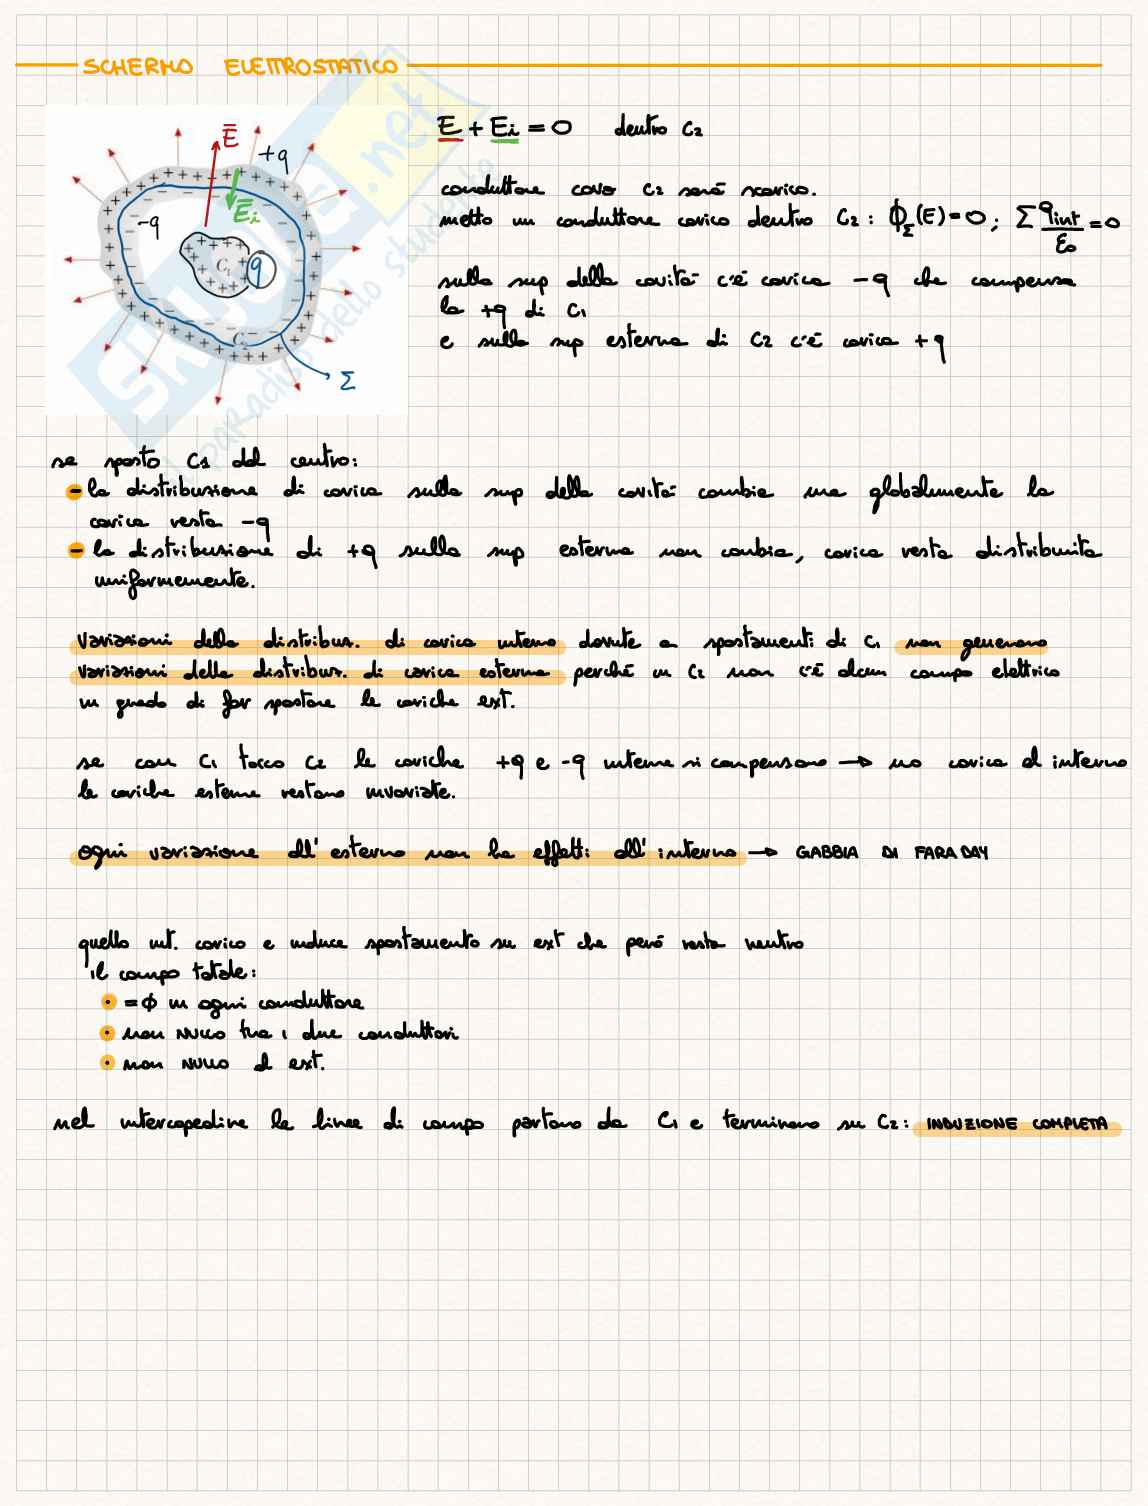 SCHERMO ELETTROSTATICO
E + Ei = 0 dentro C2
conduttore cavo C2 sarà scarico.
metto un conduttore carico dentro C2: ϕΣ(E)=0; Σ qint/ε0 = 0
sulla sup della cavità c'è carica -q che compensa
la +q di C1
e sulla sup esterna di C2 c'è carica +q
E
+q
-q
Ei
C1
q
C2
Σ
se sposto C1 dal centro:
- la distribuzione di carica sulla sup della cavità cambia ma globalmente la
carica resta -q
- la distribuzione di +q sulla sup esterna non cambia, carica resta distribuita
uniformemente.
variazioni della distribuz. di carica interna dovute a spostamenti di C1 non generano
variazioni della distribuz. di carica esterna perché in C2 non c'è alcun campo elettrico
in grado di far spostare le cariche ext.
se con C1 tocco C2 le cariche +q e -q interne si compensano → no carica al interno
le cariche esterne restano invariate.
ogni variazione all'esterno non ha effetti all'interno → GABBIA DI FARADAY
quello int. carico e induce spostamento su ext che però resta neutro
il campo totale:
• =ϕ in ogni conduttore
• non NULLO tra i due conduttori
• non NULLO al ext.
nel intercapedine le linee di campo partono da C1 e terminano su C2: INDUZIONE COMPLETA
SKUOLA.net
il paradiso dello studente